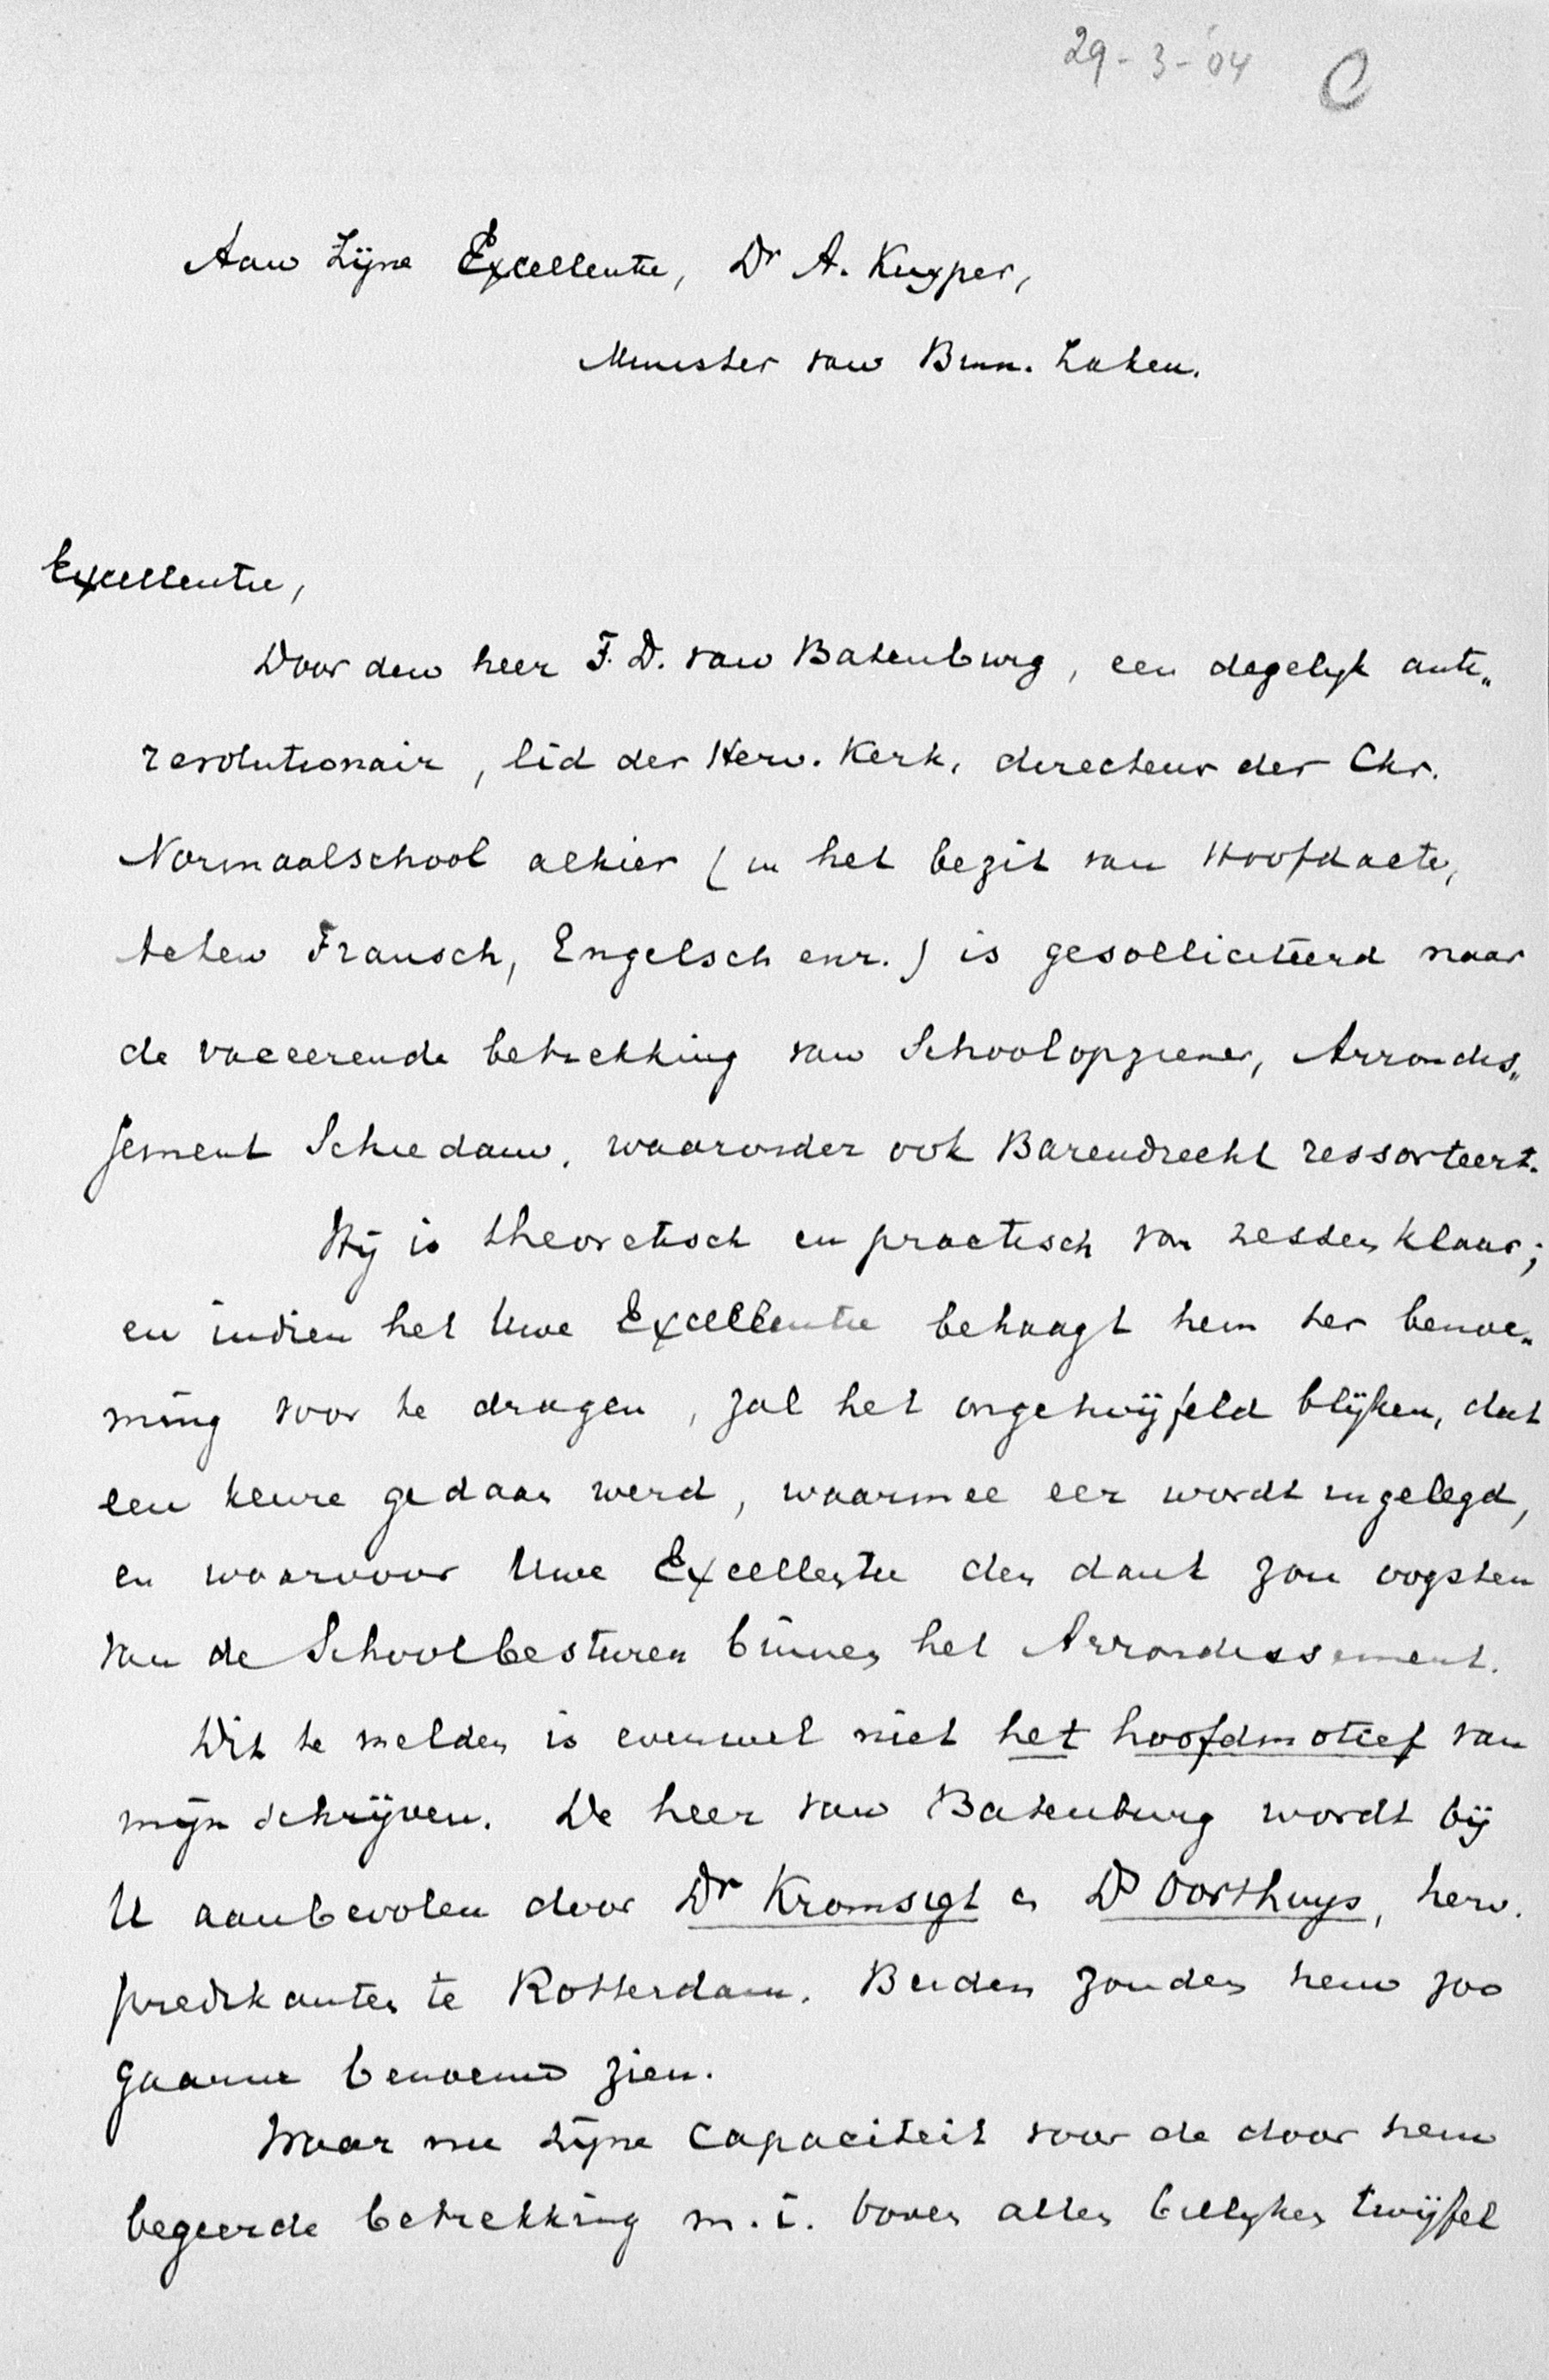 29-3-'04 C
Aan Zijne Excellentie, Dr A. Kuyper,
Minister van Binn. Zaken.
Excellentie,
Door den heer F. D. van Batenburg, een degelijk anti„
revolutionair, lid der Herv. Kerk, directeur der Chr.
Normaalschool alhier (in het bezit van Hoofdacte,
acten Fransch, Engelsch enz.) is gesolliciteerd naar
de vaceerende betrekking van Schoolopziener, Arrondis„
sement Schiedam, waaronder ook Barendrecht ressorteert.
Hij is theoretisch en practisch van zessen klaar;
en indien het Uwe Excellentie behaagt hem ter benoe„
ming voor te dragen, zal het ongetwijfeld blijken, dat
een keure gedaan werd, waarmee eer wordt ingelegd,
en waarvoor Uwe Excellentie den dank zou oogsten
van de Schoolbesturen binnen het Arrondissement.
Dit te melden is evenwel niet het hoofdmotief van
mijn schrijven. De heer van Batenburg wordt bij
U aanbevolen door Dr Kromsigt en Ds Oorthuys, herv.
predikanten te Rotterdam. Beiden zouden hem zoo
gaarne benoemd zien.
Waar nu zijne capaciteit voor de door hem
begeerde betrekking m.i. boven allen billijken twijfel